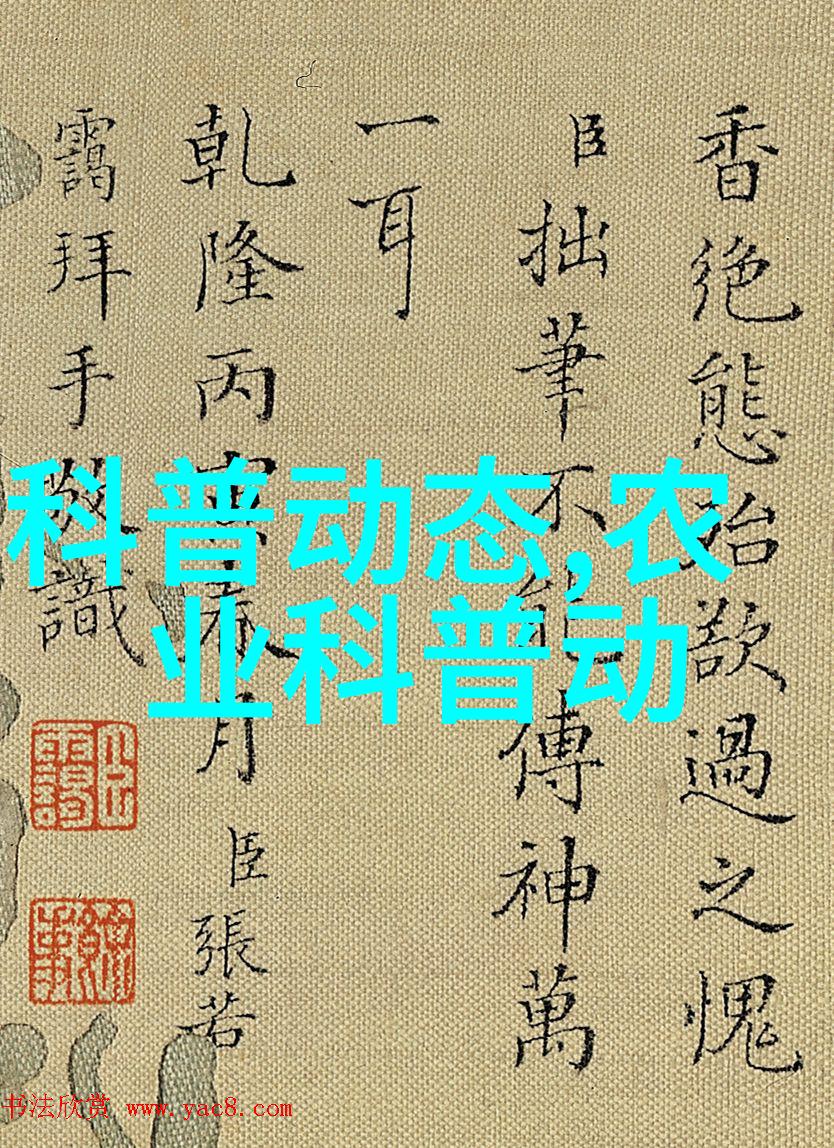 香絶態殆欲過之愧
臣拙筆不能傳神萬
一耳
乾隆丙寅春月臣張若
靄拜手敬識
科普动态,农
业科普动
书法欣赏 www.yac8.com